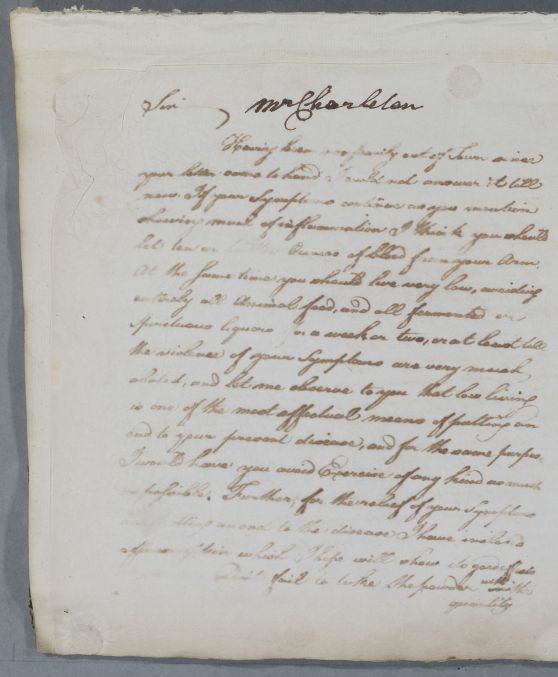 Sir Mr Charleton
Having been necessarily out of Town since
your letter came to hand I could not answer it till
now. If your Symptoms continue as you mention
shewing much of inflammation I think you should
let ten or twelve Ounces of blood from your Arm.
At the same time you should live very low, avoiding
entirely all Animal food, and all fermented or
Spirituous liquors for a week or two, or at least till
the violence of your Symptoms are very much
abated, and let me observe to you that low living
is one of the most effectual means of putting an
end to your present disease, and for the same purpose
I would have you avoid Exercise of any kind as much
as possible. Further, for the relief of your Symptoms
and putting an end to the disease I have inclosed
which I hope will show its good effects
fail to take the powder with the
quantity